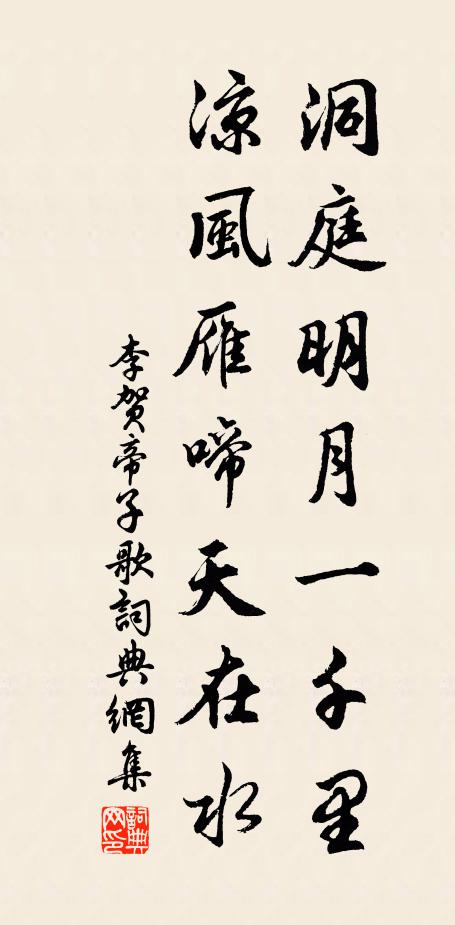 洞庭明月一千里
涼風雁啼天在水
李賀帝子歌詞典網集
詞典网印